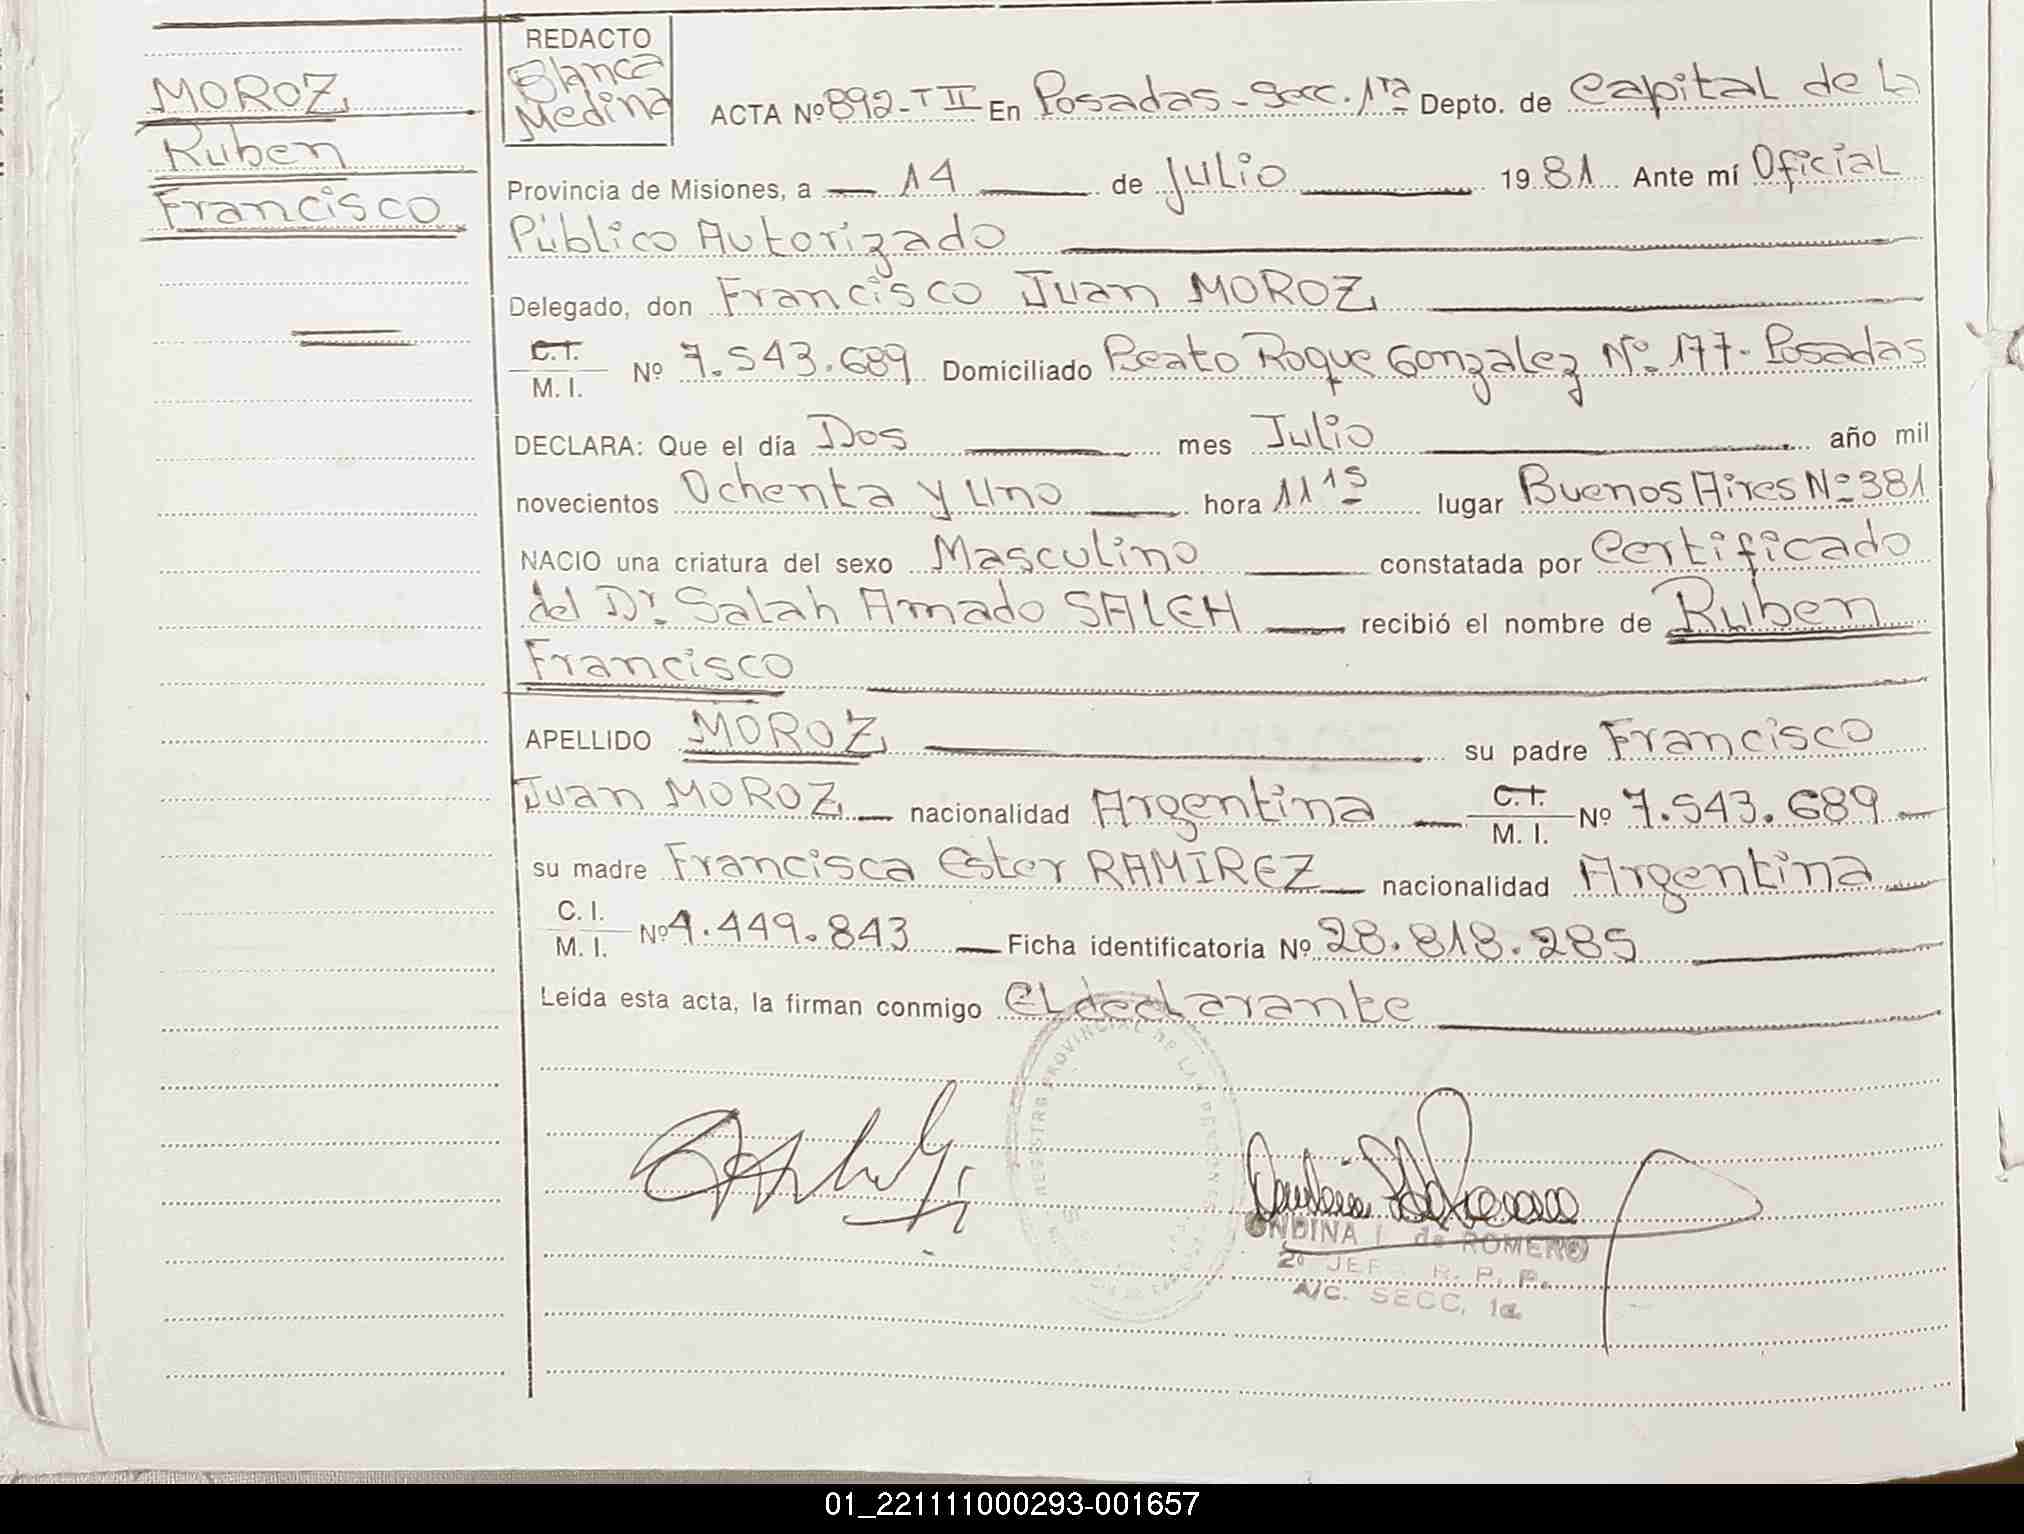 MOROZ
Ruben
Francisco
REDACTO
Blanca
Medina
ACTA Nº 892-T II En Posadas-Secc. 1ra Depto. de Capital de la
Provincia de Misiones, a 14 de Julio 1981 Ante mí Oficial
Público Autorizado
Delegado, don Francisco Juan MOROZ
C.I.
M. I. Nº 7.543.689 Domiciliado Beato Roque Gonzalez Nº 177- Posadas
DECLARA: Que el día Dos mes Julio año mil
novecientos Ochenta y Uno hora 11 15 lugar Buenos Aires Nº 381
NACIO una criatura del sexo Masculino constatada por Certificado
del Dr. Salah Amado SALEH recibió el nombre de Ruben
Francisco
APELLIDO MOROZ su padre Francisco
Juan MOROZ nacionalidad Argentina C.I. M. I. Nº 7.543.689
su madre Francisca Ester RAMIREZ nacionalidad Argentina
C. I.
M. I. Nº 4.449.843 Ficha identificatoria Nº 28.818.285
Leída esta acta, la firman conmigo el declarante
REGISTRO PROVINCIAL DE LAS PERSONAS
ONDINA I. de ROMERO
2º JEFE R. P. P.
A/C. SECC. 1a
01_221111000293-001657